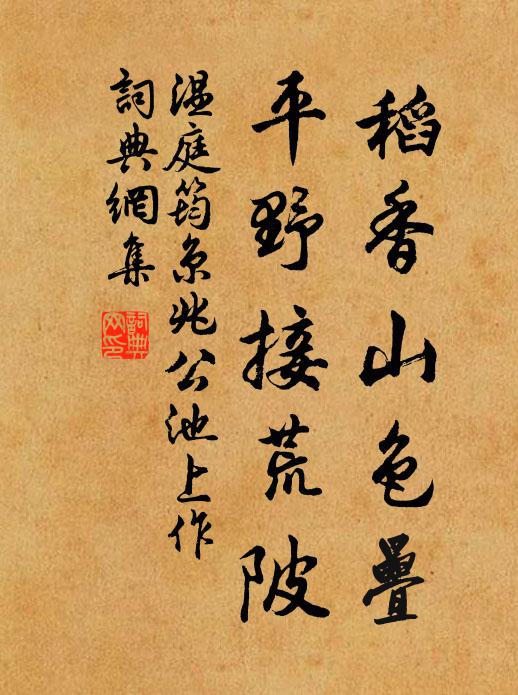 稻香山色疊
平野接荒陂
溫庭筠京兆公池上作
詞典網集
詞典网印